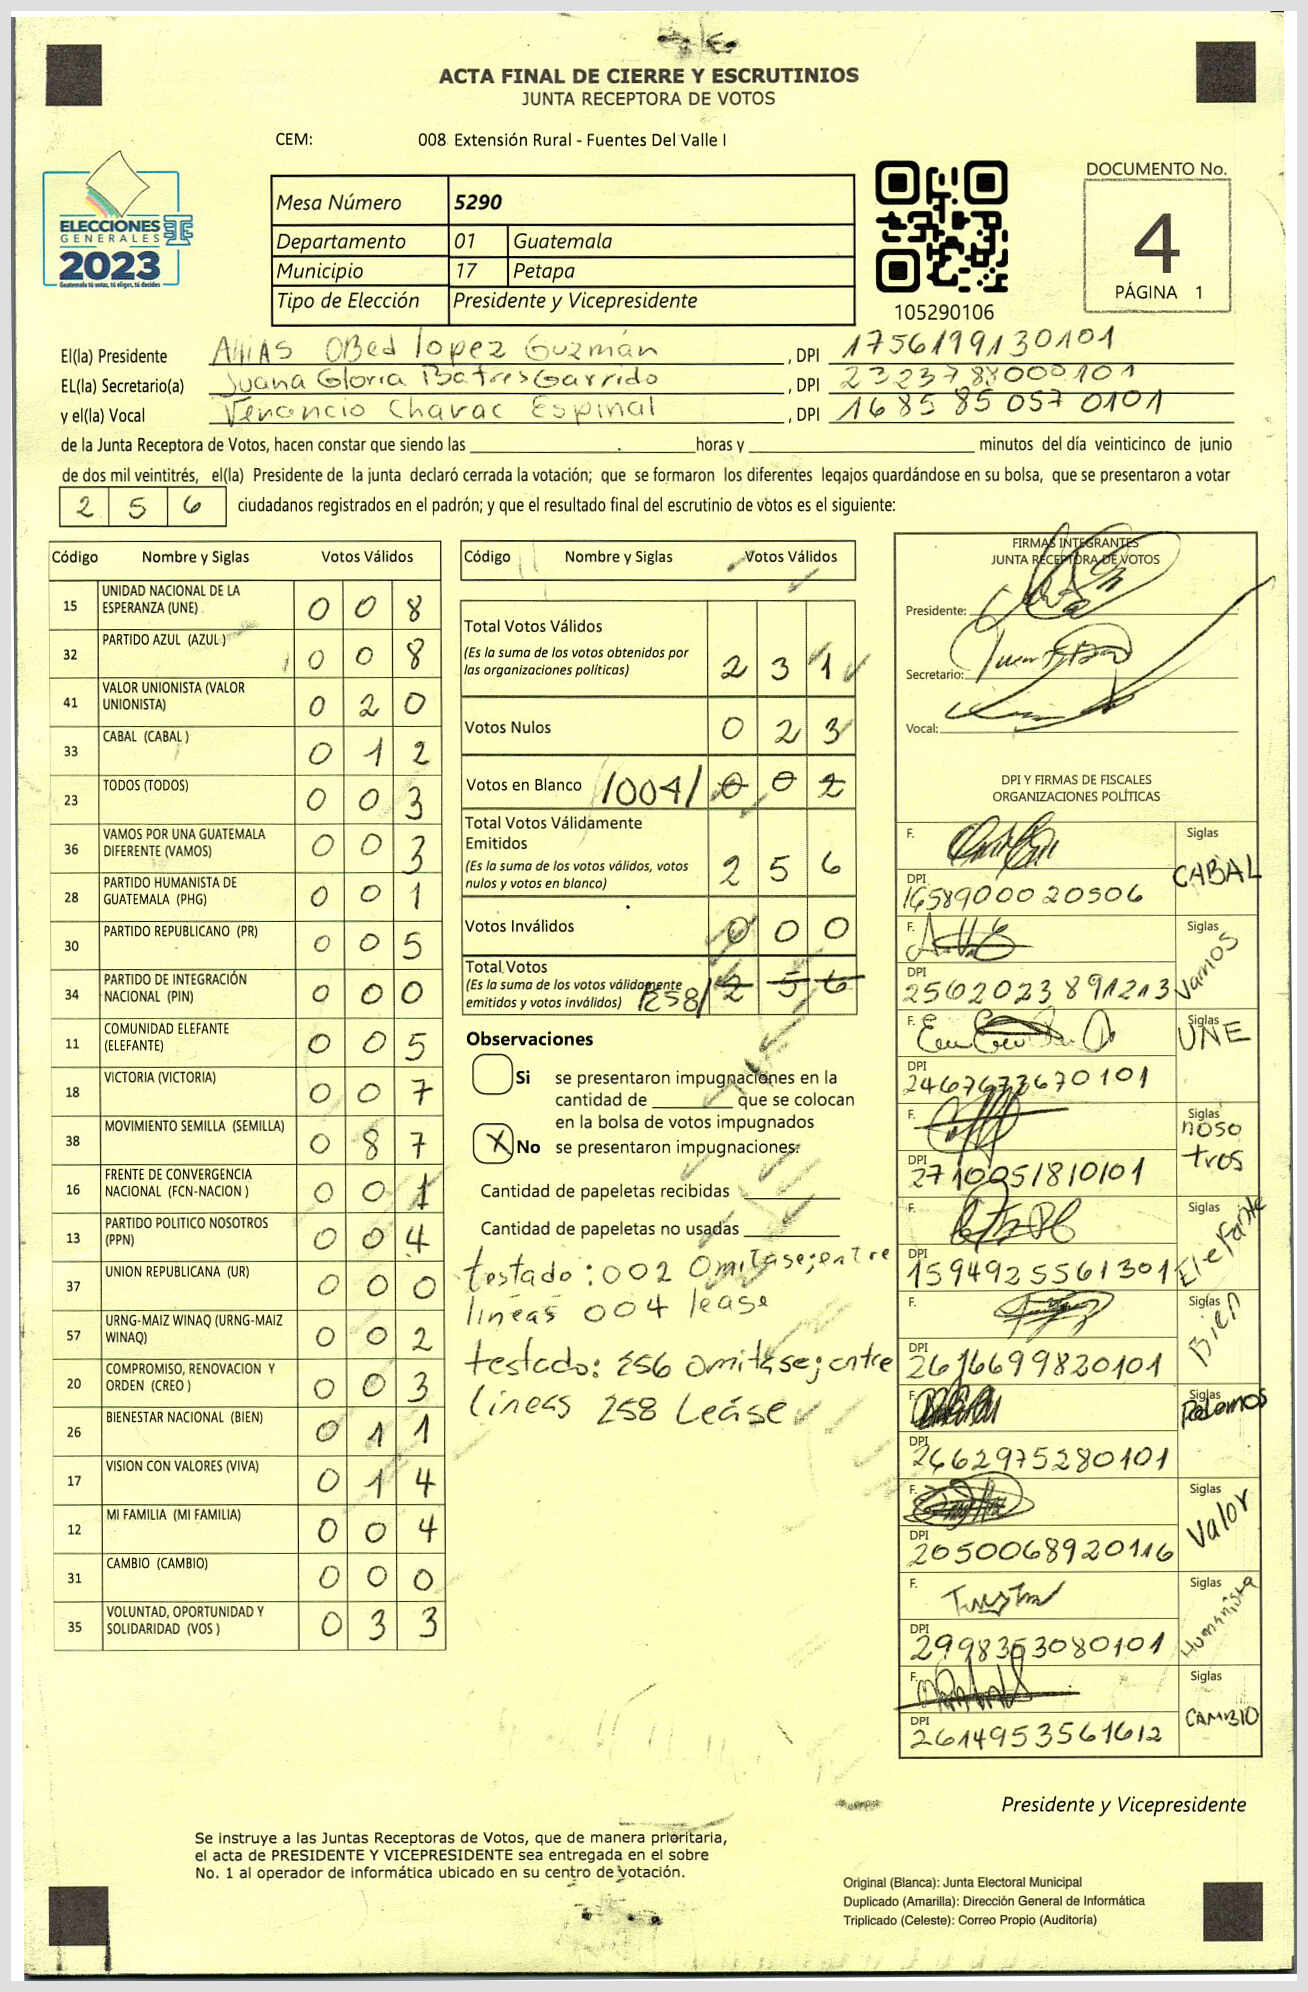 ACTA FINAL DE CIERRE Y ESCRUTINIOS
JUNTA RECEPTORA DE VOTOS
CEM: 008 Extensión Rural - Fuentes Del Valle I
ELECCIONES
GENERALES
2023
Guatemala tú votas, tú eliges, tú decides
Mesa Número 5290
Departamento 01 Guatemala
Municipio 17 Petapa
Tipo de Elección Presidente y Vicepresidente
105290106
DOCUMENTO No.
4
PÁGINA 1
El(la) Presidente Obed lopez Guzmán , DPI 1756199130101
EL(la) Secretario(a) Juana Gloria Batres Garrido , DPI
y el(la) Vocal Venancio Chavac Espinal , DPI 1685850570101
de la Junta Receptora de Votos, hacen constar que siendo las horas y minutos del día veinticinco de junio
de dos mil veintitrés, el(la) Presidente de la junta declaró cerrada la votación; que se formaron los diferentes legajos guardándose en su bolsa, que se presentaron a votar
2 5 6 ciudadanos registrados en el padrón; y que el resultado final del escrutinio de votos es el siguiente:
Código Nombre y Siglas Votos Válidos
15 UNIDAD NACIONAL DE LA ESPERANZA (UNE) 0 0 8
32 PARTIDO AZUL (AZUL) 0 0 8
41 VALOR UNIONISTA (VALOR UNIONISTA) 0 2 0
33 CABAL (CABAL ) 0 1 2
23 TODOS (TODOS) 0 0 3
36 VAMOS POR UNA GUATEMALA DIFERENTE (VAMOS) 0 0 3
28 PARTIDO HUMANISTA DE GUATEMALA (PHG) 0 0 1
30 PARTIDO REPUBLICANO (PR) 0 0 5
34 PARTIDO DE INTEGRACIÓN NACIONAL (PIN) 0 0 0
11 COMUNIDAD ELEFANTE (ELEFANTE) 0 0 5
18 VICTORIA (VICTORIA) 0 0 7
38 MOVIMIENTO SEMILLA (SEMILLA) 0 8 7
16 FRENTE DE CONVERGENCIA NACIONAL (FCN-NACION ) 0 0 1
13 PARTIDO POLITICO NOSOTROS (PPN) 0 0 4
37 UNION REPUBLICANA (UR) 0 0 0
57 URNG-MAIZ WINAQ (URNG-MAIZ WINAQ) 0 0 2
20 COMPROMISO, RENOVACION Y ORDEN (CREO ) 0 0 3
26 BIENESTAR NACIONAL (BIEN) 0 1 1
17 VISION CON VALORES (VIVA) 0 1 4
12 MI FAMILIA (MI FAMILIA) 0 0 4
31 CAMBIO (CAMBIO) 0 0 0
35 VOLUNTAD, OPORTUNIDAD Y SOLIDARIDAD (VOS ) 0 3 3
Código Nombre y Siglas Votos Válidos
Total Votos Válidos
(Es la suma de los votos obtenidos por
las organizaciones políticas) 2 3 1
Votos Nulos 0 2 3
Votos en Blanco /004/ 0 0 2
Total Votos Válidamente
Emitidos
(Es la suma de los votos válidos, votos
nulos y votos en blanco) 2 5 6
Votos Inválidos 0 0 0
Total Votos
(Es la suma de los votos válidamente
emitidos y votos inválidos) /258/ 2 5 6
Observaciones
Si se presentaron impugnaciones en la
cantidad de que se colocan
en la bolsa de votos impugnados
X No se presentaron impugnaciones.
Cantidad de papeletas recibidas
Cantidad de papeletas no usadas
testado: 002 Omitase; entre
lineas 004 lease
testado: 256 Omitase; entre
lineas 258 Leáse
FIRMAS INTEGRANTES
JUNTA RECEPTORA DE VOTOS
Presidente:
Secretario:
Vocal:
DPI Y FIRMAS DE FISCALES
ORGANIZACIONES POLÍTICAS
F. Siglas CABAL
DPI 1658900020506
F. Siglas Vamos
DPI 2562023891213
F. Siglas UNE
DPI 2467673670101
F. Siglas nosotros
DPI 2710051810101
F. Siglas Elefante
DPI 1594925561301
F. Siglas Bien
DPI 2616699820101
F. Siglas
DPI 2662975280101
F. Siglas Valor
DPI 2050068920116
F. Siglas Humanista
DPI 2998353080101
F. Siglas CAMBIO
DPI 2614953561612
Presidente y Vicepresidente
Se instruye a las Juntas Receptoras de Votos, que de manera prioritaria,
el acta de PRESIDENTE Y VICEPRESIDENTE sea entregada en el sobre
No. 1 al operador de informática ubicado en su centro de votación.
Original (Blanca): Junta Electoral Municipal
Duplicado (Amarilla): Dirección General de Informática
Triplicado (Celeste): Correo Propio (Auditoría)